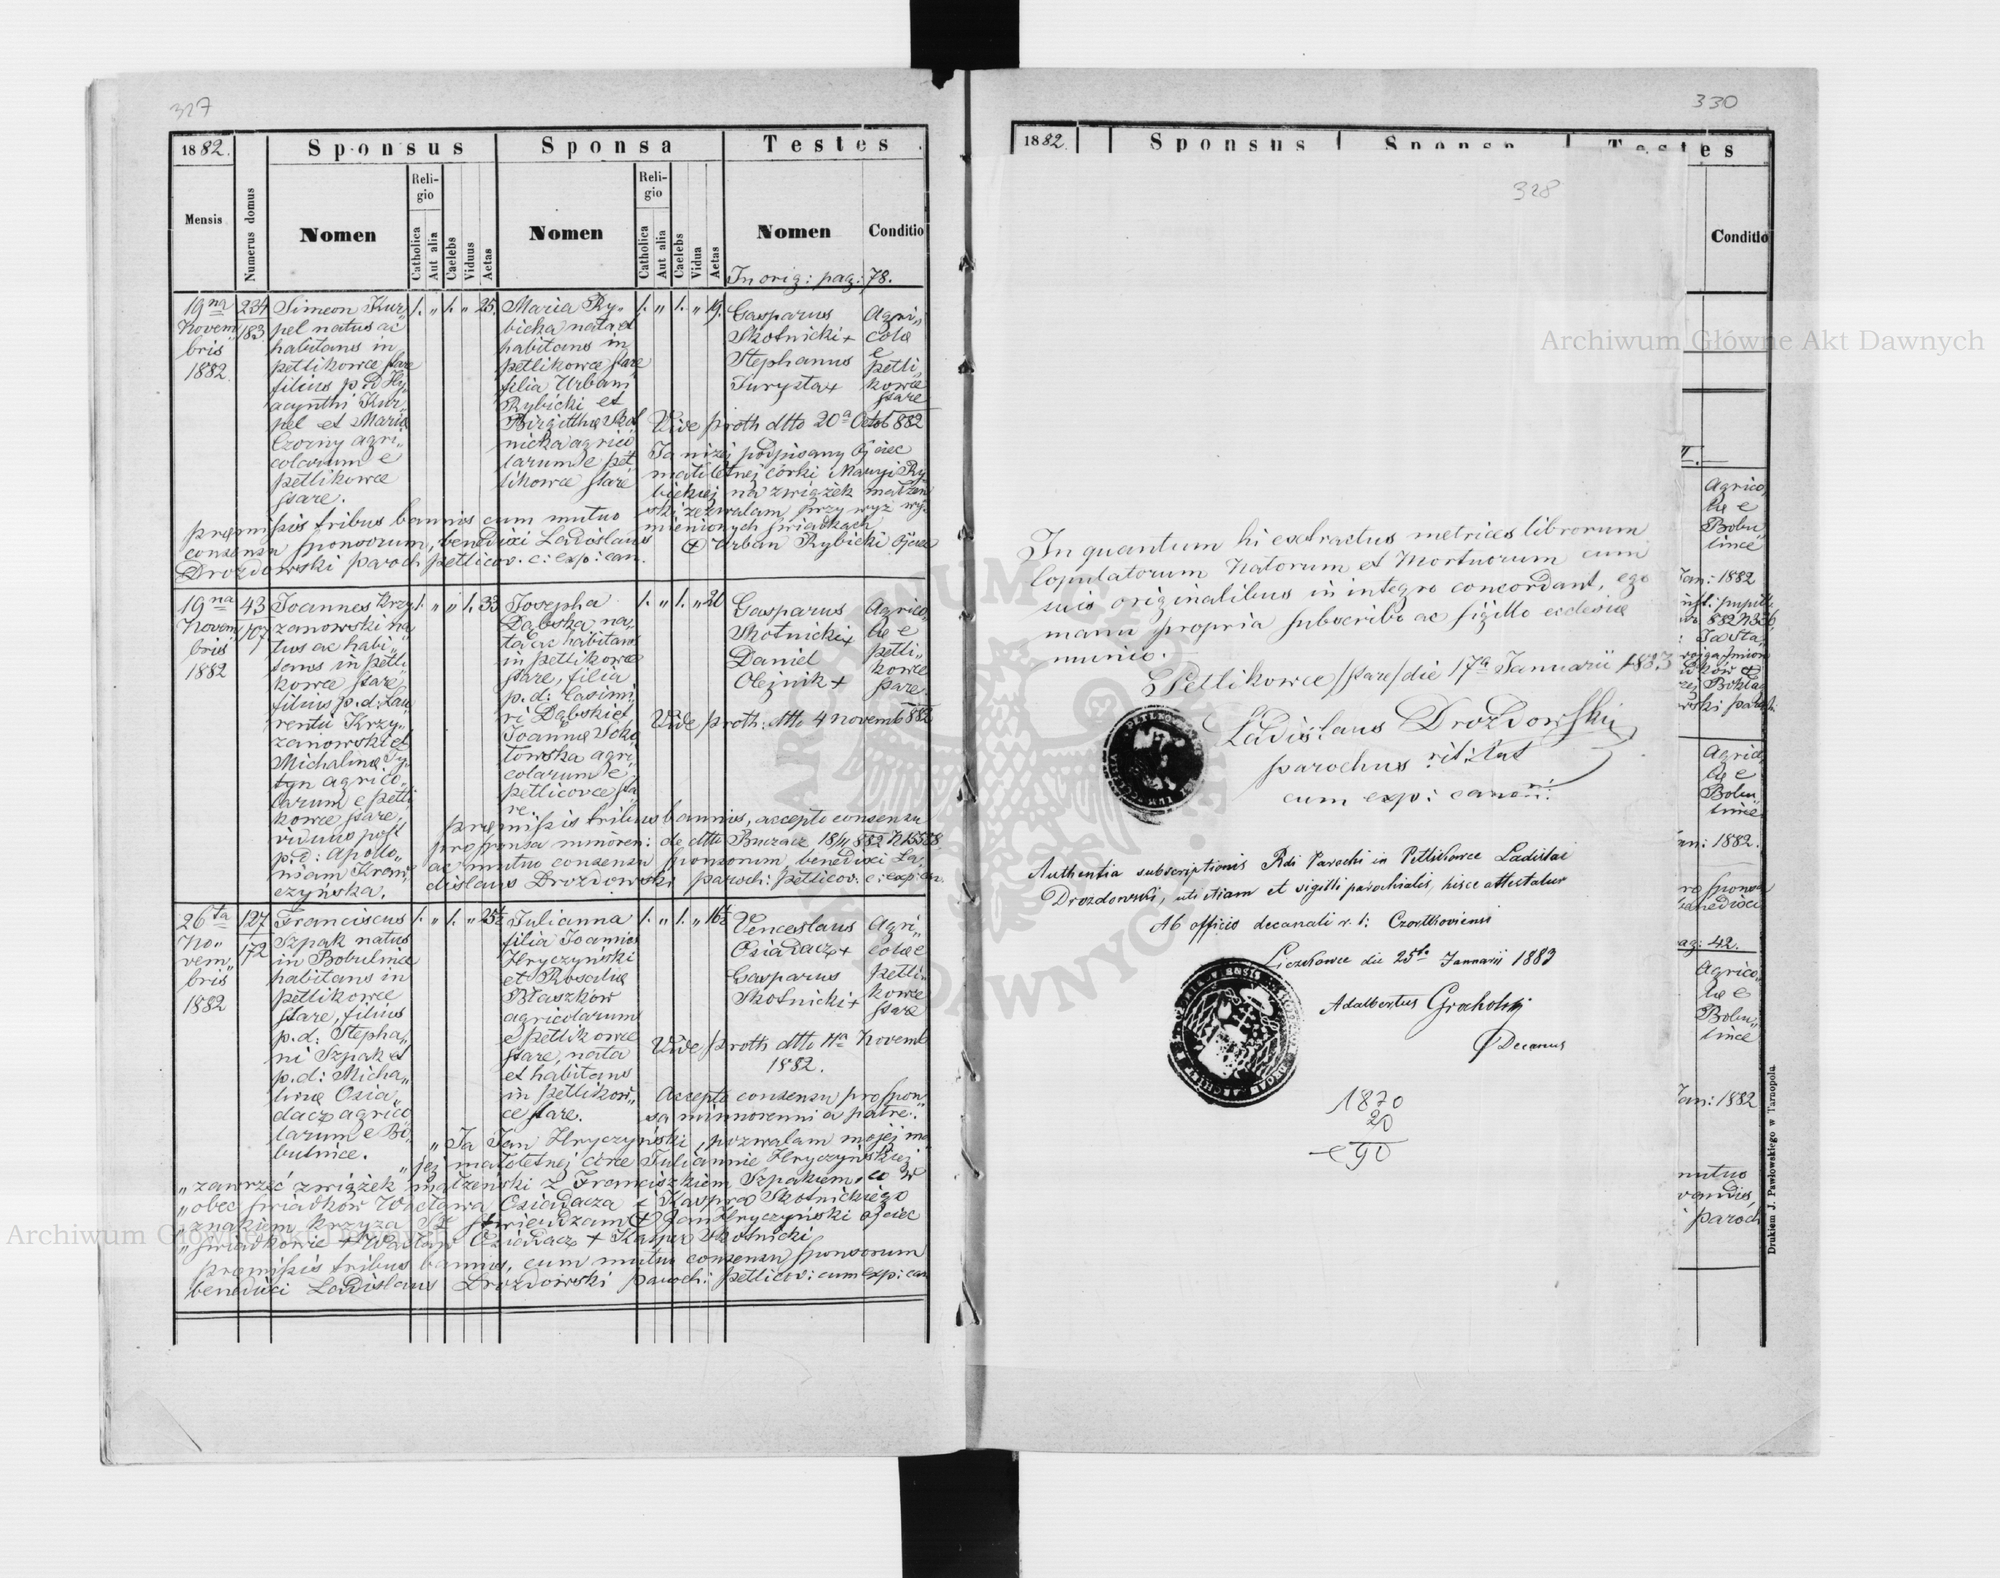 327
1882.
Sponsus
Sponsa
Testes
Mensis
Numerus domus
Nomen
Religio
Catholica
Aut alia
Caelebs
Viduus
Aetas
Nomen
Religio
Catholica
Aut alia
Caelebs
Vidua
Aetas
Nomen
Conditio
In orig: pag: 78.
19na
Novem„
bris
1882.
234
183
Simeon Kur„
pel natus ac
habitans in
Petlikowce stare
filius p.d. Hy„
acynthi Kur„
pel et Maria
Czorny agri„
colarum e
Petlikowce
stare.
1. „ 1. „ 25.
Maria Ry„
bicka nata et
habitans in
Petlikowce stare
filia Urbani
Rybicki et
Birgittha Skot
nicka agrico
larum e Pet
likowce stare
1. „ 1. „ 19.
Gasparus
Skotnicki +
Stephanus
Turysta +
Agri„
cola
e
Petli„
kowce
stare
Vide proth dtto 20a Octob 882
Ja niżej podpisany Ojciec
małoletnej córki Maryi Ry
bickiej na związek małżeń
ski zezwalam przy wyż wy
mienionych świadkach
+ Urban Rybicki Ojciec
præmissis tribus bannis cum mutuo
consensu sponsorum, benedixi Ladislaus
Drozdowski paroch Petlicov. c: exp: can.
19na
Novem„
bris
1882
43
107
Joannes Krzy
zanowski na„
tus ac habi„
tans in Petli
kowce stare
filius p.d. Lau
rentii Krzy„
zanowski et
Michalina Ty„
tyn agrico„
larum e Petli
kowce stare,
viduus post
p.d: Apollo„
niam Krom„
czyńska.
1. „ „ 1. 33
Josepha
Dąbska na„
ta ac habitans
in Petlikowce
stare, filia
p.d: Casimi„
ri Dąbski et
Joanna Soko
łowska agri„
colarum e
Petlicovce sta
re.
1. „ 1. „ 20
Gasparus
Skotnicki +
Daniel
Olejnik +
Agrico„
læ e
Petli„
kowce
stare.
Vide proth: dtto 4 novemb 882
præmissis tribus bannis, accepto consensu
pro sponsa minoren: de dtto Buczacz 18/11 882 N 15528
ac mutuo consensu sponsorum benedixi La„
dislaus Drozdowski paroch: Petlicov. c: exp: can.
26ta
No„
vem„
bris
1882
127
172
Franciscus
Szpak natus
in Bobulince
habitans in
Petlikowce
stare, filius
p.d: Stepha„
ni Szpak et
p.d: Micha„
lina Osia„
dacz agrico
larum e Bo„
bulince.
1. „ 1. „ 25½
Julianna
filia Joannis
Hryczyński
et Rosalia
Błaszków
agricolarum
e Petlikowce
stare, nata
et habitans
in Petlikow„
ce stare.
1. „ 1. „ 16½
Venceslaus
Osiadacz +
Gasparus
Skotnicki +
Agri„
colæ e
Petli„
kowce
stare
Vide proth dtto 11a Novemb
1882.
Accepto consensu pro spon„
sa minnorenni a patre:
„ Ja Jan Hryczyński, pozwalam mojej mo„
„ jej małoletnej córce Juliannie Hryczyńskiej
„ zawrzeć związek małżeński z Franciszkiem Szpakiem co w
„ obec świadków Wacława Osiadacza i Kaspra Skotnickiego
„ znakiem krzyża Sz stwierdzam + Jan Hryczyński ojciec
„ świadkowie + Wacław Osiadacz + Kasper Skotnicki
præmissis tribus bannis, cum mutuo consensu sponsorum
benedixi Ladislaus Drozdowski paroch: Petlicov: cum exp: can
330
1882.
Sponsus
Sponsa
Testes
328
Conditio
In quantum hi extractus metrices librorum
Copulatorum Natorum et Mortuorum cum
suis originalibus in integro concordant, ego
manu propria subscribo ac sigillo ecclesiæ
munio.
Petlikowce /stare/ die 17a Januarii 1883
Ladislaus Drozdowski
parochus rit: lat
cum exp: canon:
Authentia subscriptionis Rdi Parochi in Petlikowce Ladislai
Drozdowski, uti etiam et sigilli parochialis, hisce attestatur
Ab officio decanali r. l: Czortkoviensi
Liczkowce die 25ta Januarii 1883
Adalbertus Gracholski
Decanus
1870
20
90
II.
Agrico„
læ e
Bobu„
lince
Jan: 1882
Agrico
læ e
Bobu„
lince
an: 1882.
pro sponsa
benedixi
pag: 42.
Agrico„
læ e
Bobu„
lince
Jan: 1882
mutuo
paroch
Drukiem J. Pawłowskiego w Tarnopolu.
Archiwum Główne Akt Dawnych
Archiwum Główne Akt Dawnych
ARCHIWUM GŁÓWNE AKT DAWNYCH